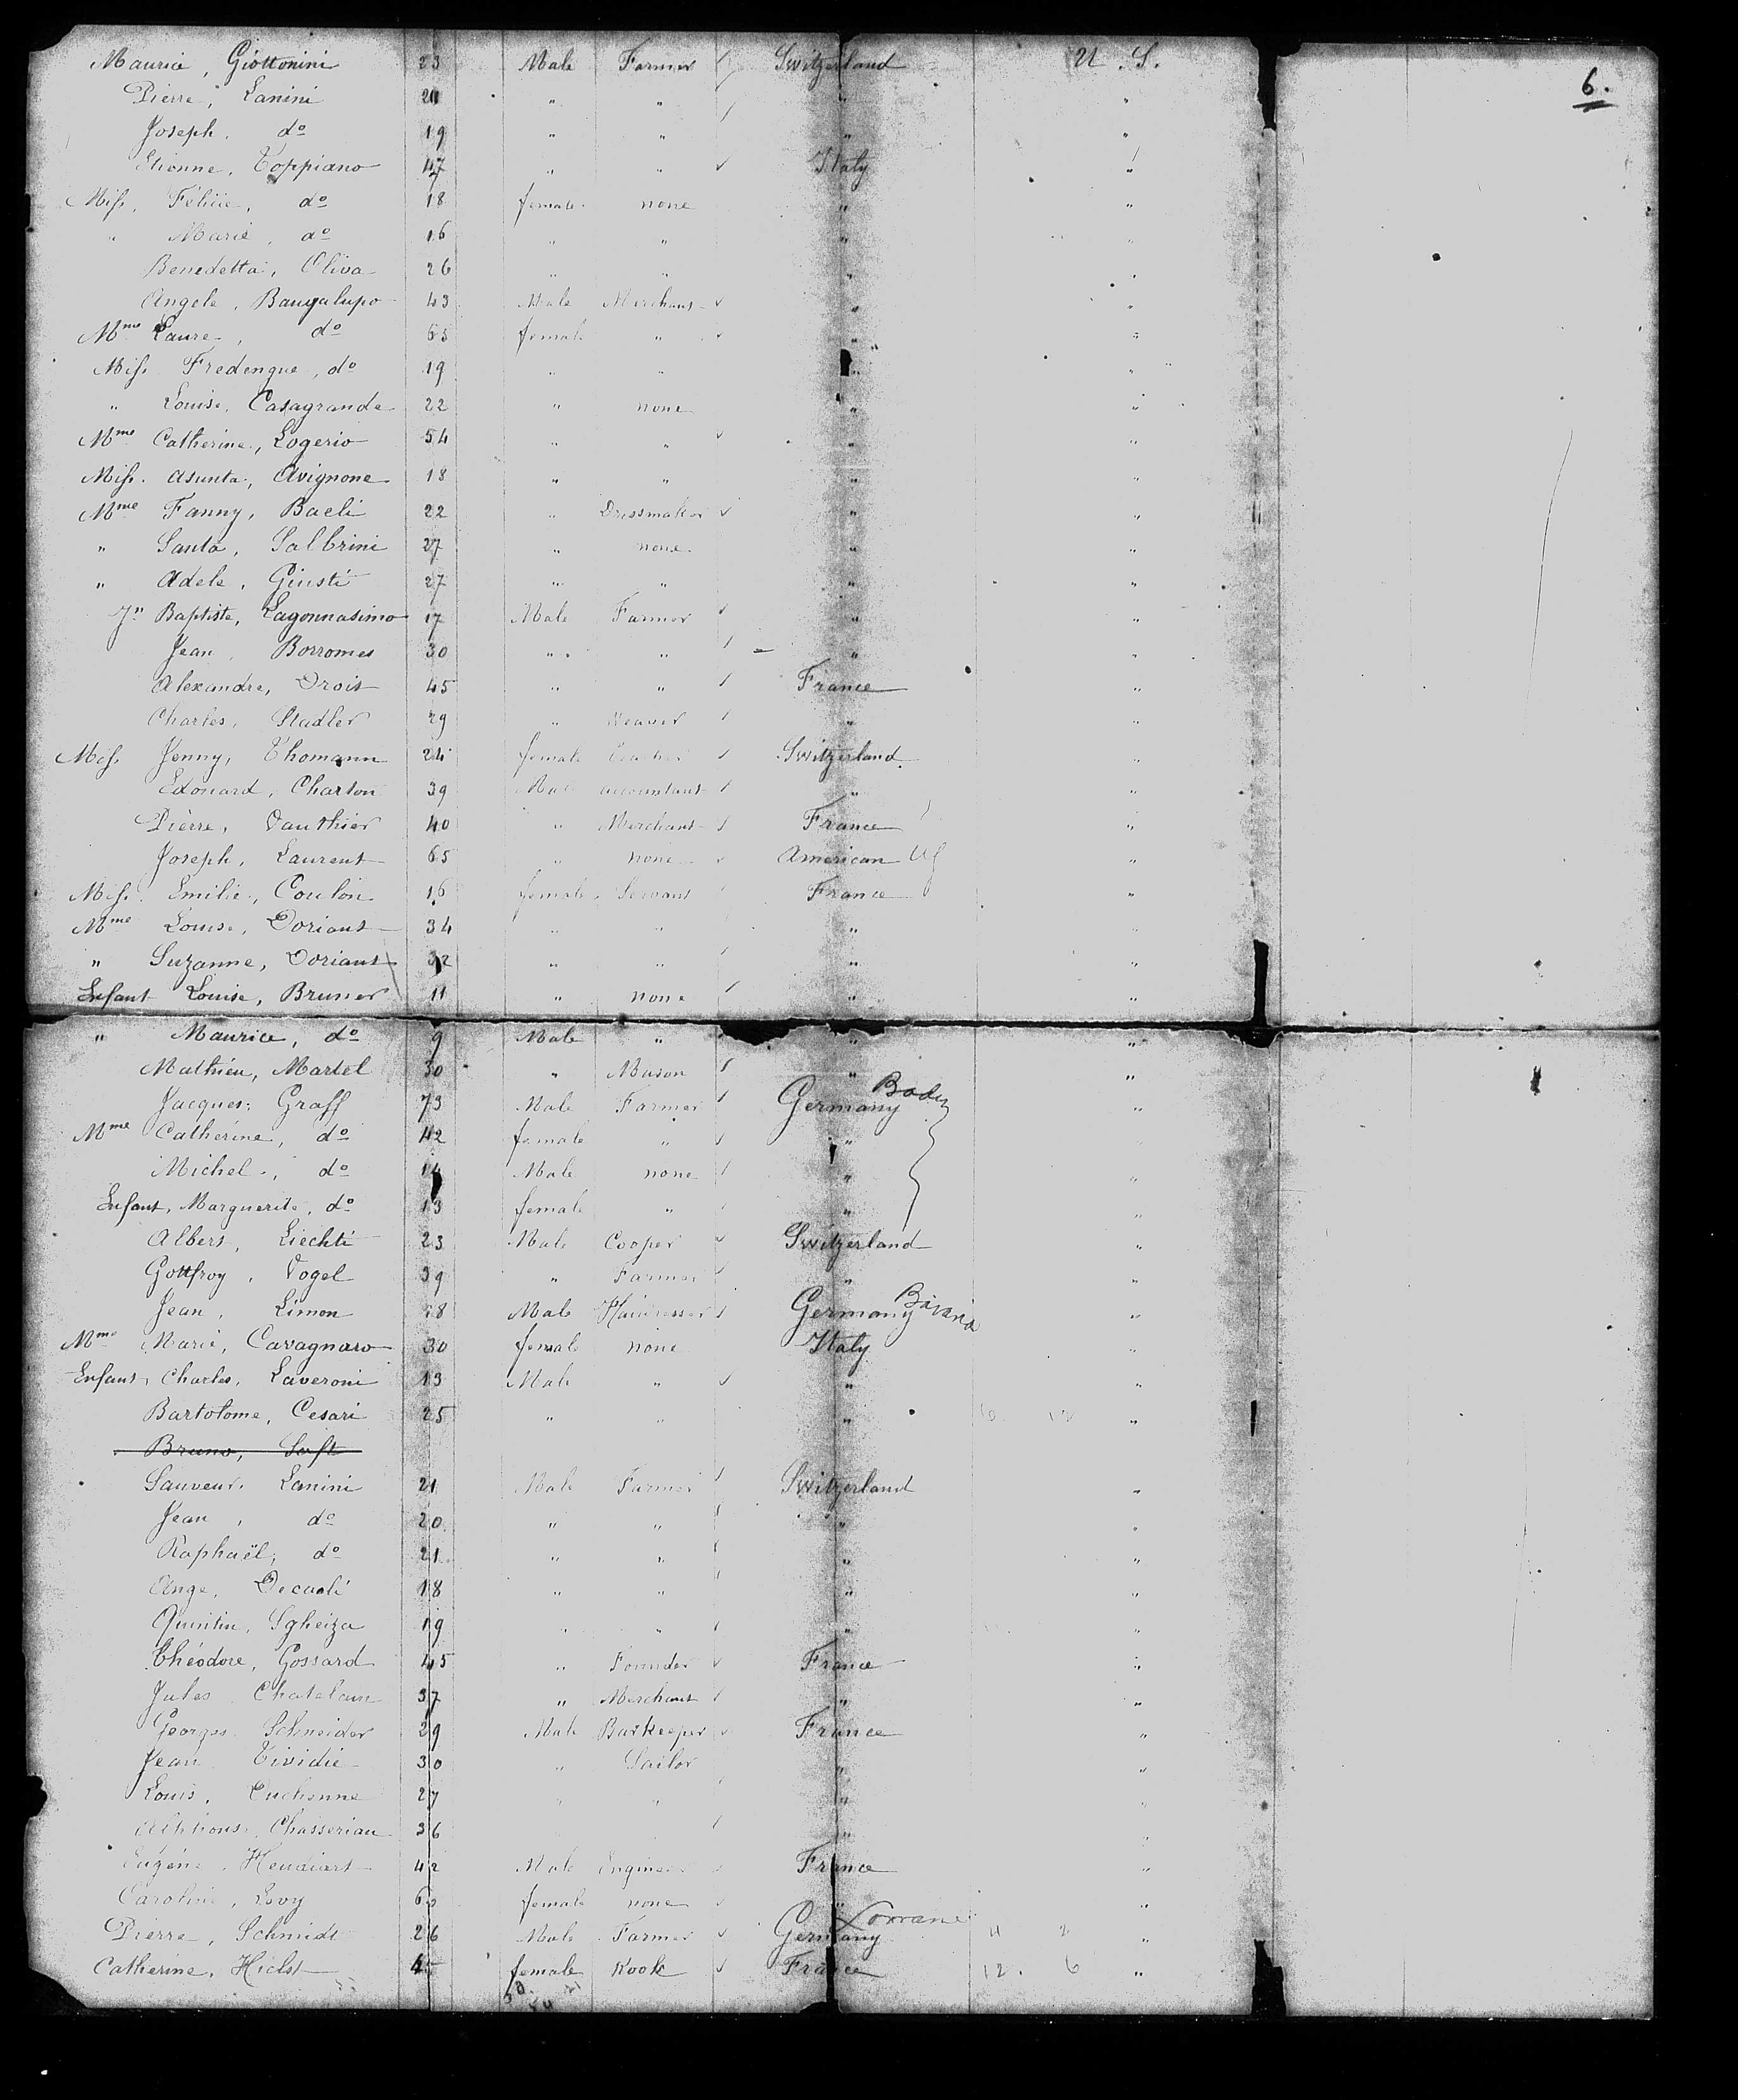 6.
Maurice, Giottonini 23 Male Farmer Switzerland U. S.
Pierre, Lanini 20 " " " "
Joseph, do 19 " " " "
Etienne, Toppiano 47 " " Italy "
Miss, Félicie, do 18 female none " "
" Marie, do 16 " " " "
Benedetta, Oliva 26 " " " "
Angele, Baugalupo 43 Male Merchant " "
Mme Laure, do 65 female " " "
Miss Fredengue, do 19 " " " "
" Louise, Casagrande 22 " none " "
Mme Catherine, Logerio 54 " " " "
Miss. Asunta, Avignone 18 " " " "
Mme Fanny, Baeli 22 " Dressmaker " "
" Santa, Salbrini 27 " none " "
" Adele, Giusti 27 " " " "
Jn Baptiste, Lagomasimo 17 Male Farmer " "
Jean, Borromes 30 " " " "
Alexandre, Drois 45 " " France "
Charles, Stadler 29 " Weaver " "
Miss Jenny, Thomann 24 female Switzerland "
Edouard, Charton 39 Male accountant " "
Pierre, Vauthier 40 " Merchant France "
Joseph, Laurent 65 " none American "
Miss. Emilie, Coulon 16 female Servant France "
Mme Louise, Doriant 34 " " " "
" Suzanne, Doriant 32 " " " "
Enfant Louise, Bruner 11 " none " "
" Maurice, do 9 Male " " "
Mathieu, Martel 30 " Mason " "
Jacques, Graff 73 Male Farmer Germany Baden "
Mme Catherine, do 42 female " " "
Michel, do 14 Male none " "
Enfant, Marguerite, do 13 female " " "
Albert, Liechti 23 Male Cooper Switzerland "
Gottfroy, Vogel 39 " Farmer " "
Jean, Limon 28 Male Hairdresser Germany Bavaria "
Mme Marie, Cavagnaro 30 female none Italy "
Enfant, Charles, Laveroni 13 Male " " "
Bartolome, Cesari 25 " " " "
Bruno, Seft
Sauveur, Lanini 21 Male Farmer Switzerland "
Jean, do 20 " " " "
Raphaël, do 21 " " " "
Ange, Decarli 18 " " " "
Quintin, Sgheiza 19 " " " "
Théodore, Gossard 45 " Founder France "
Jules Chatelain 37 " Merchant " "
Georges Schneider 29 Male Barkeeper France "
Jean Tividie 30 " Sailor " "
Louis, Duchenne 27 " " " "
Alphonse, Chasseriau 36 " "
Eugène, Heudiart 42 Male Engineer France "
Caroline, Levy 60 female none " "
Pierre, Schmidt 26 Male Farmer Germany Lorraine 4 2 "
Catherine, Hiclst 45 female Kook France 12. 6 "